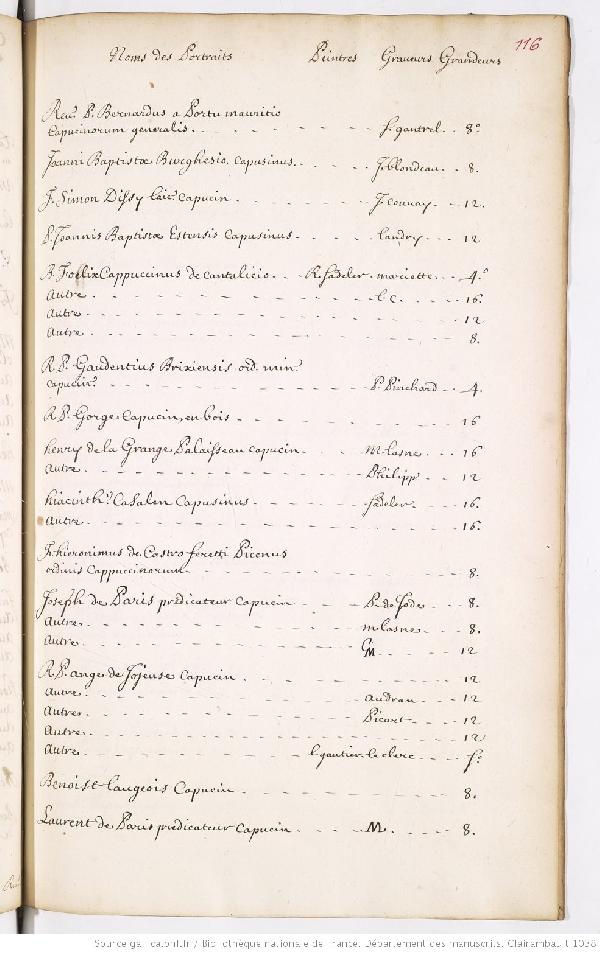 116
Noms des Portraits Peintres Graveurs Grandeurs
Rev. P. Bernardus a Portu mauritio
Capucinorum generalis. f. gantrel. 8°
Joanni Baptistæ Burghesio. Capusinus. J. blondeau. 8.
f. Simon Dissy laic Capucin. J. couuay. 12.
P. Joannis Baptistæ Estensis Capusinus. landry. 12
B. Fœlix Cappuccinus de cantalicio. R. sadeler. mariette. 4.°
Autre. l. c. 16.
autre. 12
Autre 8.
R. P. Gaudentius Brixiensis ord. min.
capucin. P. Pinchard 4.
R. P. Gorge Capucin, en bois. 16
henry de la Grange Palaisseau capucin. M. lasne. 16
Autre. Philipp. 12
hiacinth. Casalen Capusinus sadeler. 16.
Autre 16.
f. hieronimus de Castro feretti Picenus
ordinis Cappuccinorum. 8.
Joseph de Paris predicateur Capucin P. de Jode. 8.
Autre. m lasne 8.
Autre M. 12
R. P. ange de Joyeuse Capucin. 12
Autre. audran 12
Autre. Picart 12
Autre. 12
Autre l. gautier. le clerc f.°
Benoist langeois Capucin. 8.
Laurent de Paris predicateur Capucin M. 8.
Source gallica.bnf.fr / Bibliothèque nationale de France. Département des manuscrits. Clairambault 1038